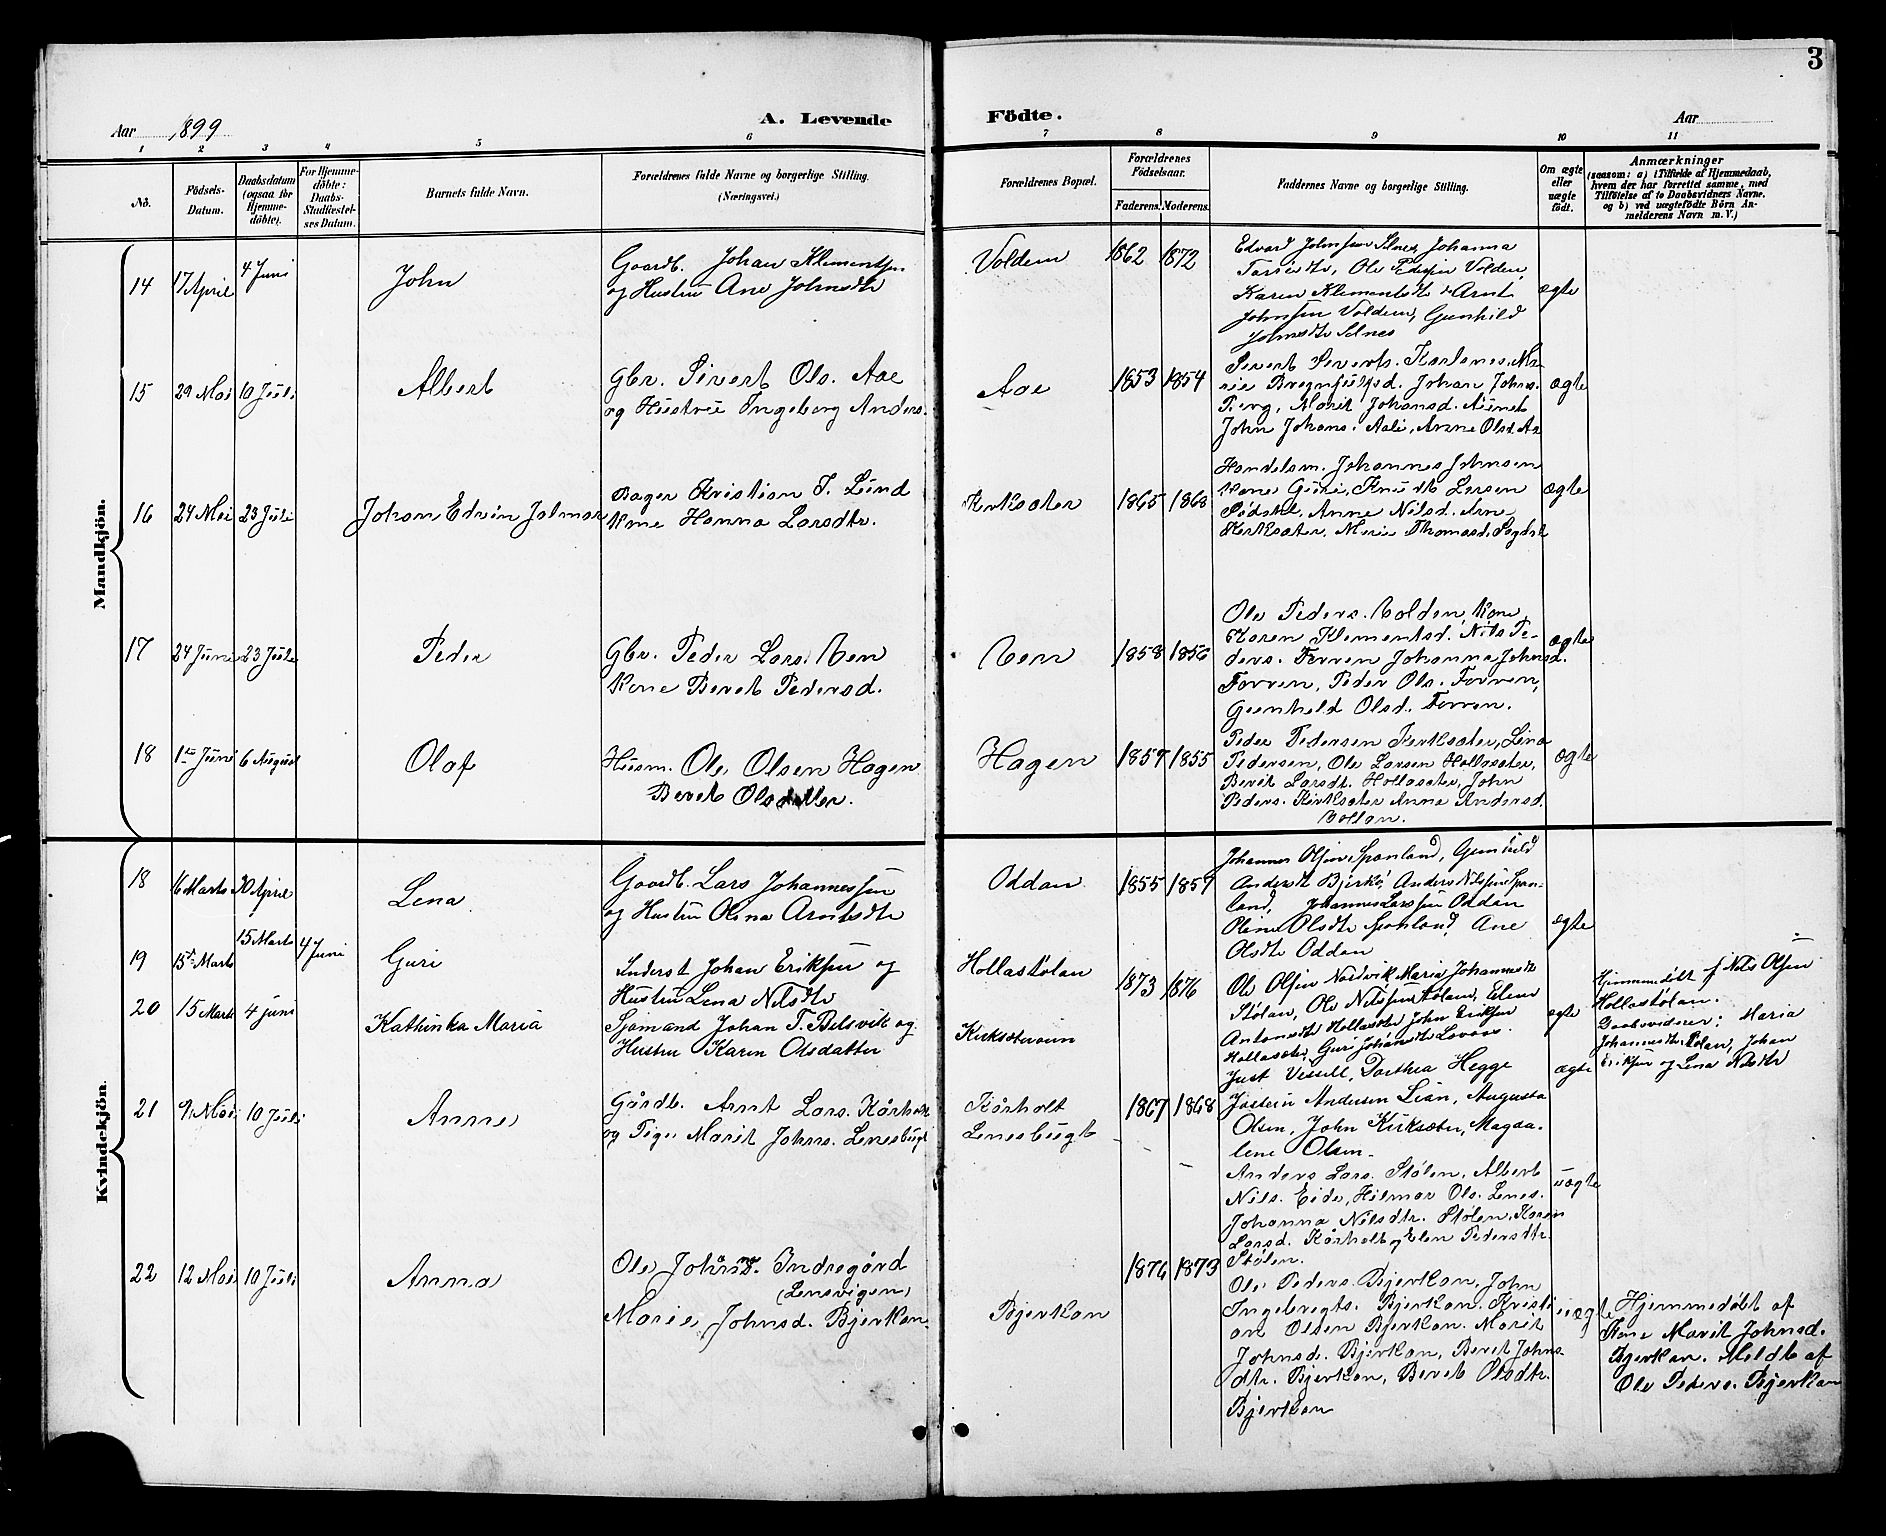 3
Aar 1899
A. Levende
Födte.
Aar
1 2 3 4 5 6 7 8 9 10 11
No.
Födsels-Datum.
Daabsdatum (ogsaa for Hjemme-döbte).
For Hjemme-döbte: Daabs-Stadfæstel-ses Datum.
Barnets fulde Navn.
Forældrenes fulde Navne og borgerlige Stilling. (Næringsvei.)
Forældrenes Bopæl.
Forældrenes Födselsaar.
Faderens. Moderens.
Faddernes Navne og borgerlige Stilling.
Om ægte eller uægte födt.
Anmærkninger
(saasom: a) i Tilfælde af Hjemmedaab,
hvem der har forrettet samme, med
Tilföielse af to Daabsvidners Navne.
og b) ved uægtefödte Börn An-
melderens Navn m. V.)
Mandkjön.
14 17 April 4 Juni John
Gaardb. Johan Klementsen
og Hustru Ane Johnsdtr
Voldem 1862 1872
Edvard Johnsen Selnes, Johanna
Tarsdtr, Ole Pedersen Volden
Karen Klementsdtr, Arnt
Johnsen Voldem, Gunhild
Johnsdtr Selnes
ægte
15 29 Mai 10 Juli Albert
Gbr. Sivert Ols. Aae
og Hustru Ingeborg Anders.
Aae 1853 1854
Sivert Siverts. Karlsnes, Ma-
rie Johan Johns.
Berg, Marit Johansd. Aunet
John Johans. Aali, Anne Olsd. Aa
ægte
16 24 Mai 23 Juli Johan Edvin Jalmar
Bager Kristian T. Lund
Kone Hanna Larsdtr.
Kirksæter 1865 1868
Handelsm. Johannes Johnsen
Kone Guri, Knudt Larsen
Sødahl, Anne Nilsd. Arne
Kirksæter, Marie Thomasd.
ægte
17 24 Juni 23 Juli Peder
Gbr. Peder Lars. Ven
Kone Beret Pedersd.
Ven 1858 1856
Ole Peders. Volden, Kone
Karen Klementsd. Nils Pe-
ders. Forren Johanna Johnsd.
Forren, Peder Ols. Forren,
Gunhild Olsd. Forren.
ægte
18 1ste Juni 6 August Olaf
Husm. Ole Olsen Hagen
Beret Olsdatter.
Hagen 1857 1855
Peder Pedersen Kirksæter, Lina
Pedersen, Ole Larsen Hollasæter,
Berit Larsdt. Hollasæter, John
Peders. Kirksæter Anne Andersd.
Vollan.
ægte
Kvindekjön.
18 16 Marts 30 April Lena
Gaardb. Lars Johannessen
og Hustru Olina Arntsdtr
Oddan 1855 1857
Johannes Olsen Spanland, Gunhild
Andersdt Bjerkø, Anders Nilssen Span-
land, Johannes Larssen Oddan
Oline Olsdtr Spanland, Ane
Olsdtr Oddan
ægte
19 15de Marts 15 Marts 4 Juni Guri
Inderst Johan Eriksen og
Hustru Lena Nilsdtr
Hollastølan 1873 1876
Ole Olsen Nordvik Maria Johannesdtr
Stølan, Ole Nilssen Stølan, Elen
Antonsdtr Hollasæter John Eriksen
Hollasæter, Guri Johansdtr Lovaas.
ægte
Hjemmedøbt af Nils Olsen
Hollastølan.
Daabsvidner: Maria
Johannesdtr Stølan, Johan
Eriksen og Lena Nilsdtr
20 15 Marts 4 juni Kathinka Maria
Sjømand Johan T. Belsvik og
Hustru Karen Olsdatter
Kirksæterøren
Just Vessell, Dorthea Hegge
Jostein Andersen Lian, Augusta
Olsen, John Kirksæter, Magda-
lene Olsen.
ægte
21 9 Mai 10 Juli Anne
Gårdb. Arnt Lars. Kårholt
og Pige Marit Johns. Lenesbugt
Kårholt
Lenesbugt
1867 1868
Anders Lars. Stølen, Albert
Nils. Eide, Hilmar Ols. Lenes.
Johanna Nilsdtr. Stølen, Karen
Larsd. Kårholt og Elen Pedersdtr.
Stølen.
uægte
22 12 Mai 10 Juli Anna
Ole Indregård
(Lensvigen)
Marie Johnsd. Bjerkan.
Bjerkan 1876 1873
Ole Peders. Bjerkan, John
Ingebregts. Bjerkan. Kristi-
an Olsen Bjerkan. Marit
Johnsd. Bjerkan, Beret Johns-
dtr. Bjerkan, Beret Olsdtr.
Bjerkan
uægte
Hjemmedøbt af
Kone Marit Johnsd.
Bjerkan. Meldt af
Ole Peders. Bjerkan